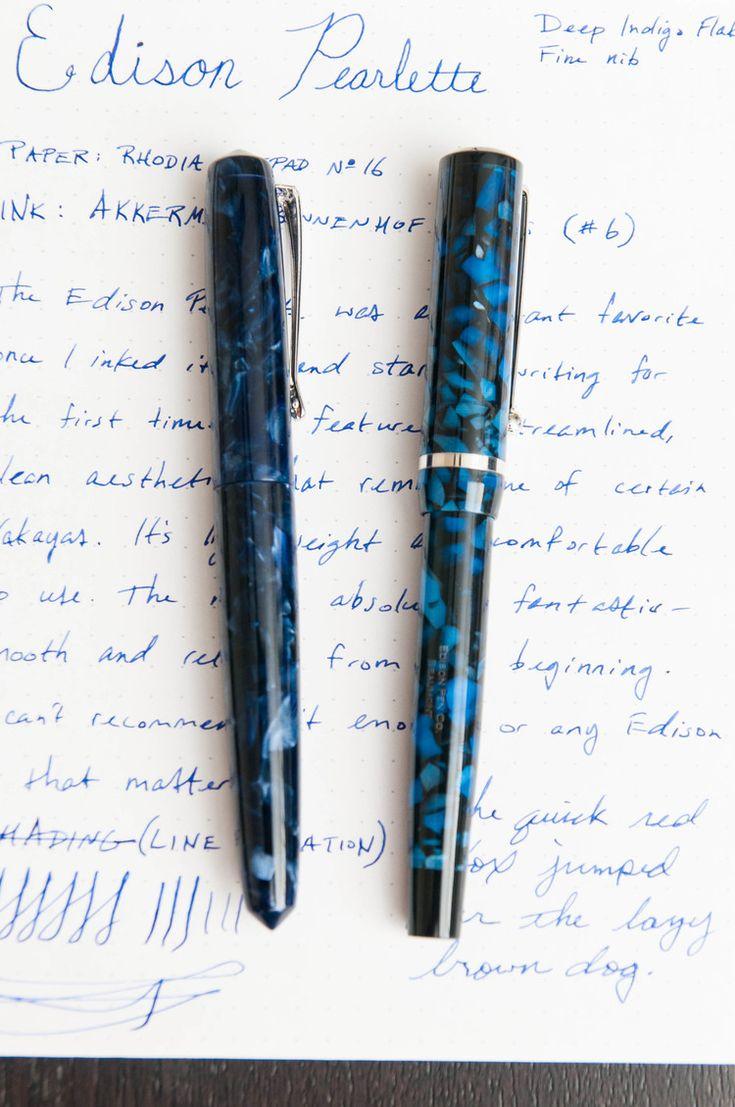 Edison Pearlette
Deep Indigo Flak
Fine nib
PAPER: RHODIA PAD Nº 16
INK: AKKERM NENHOF (#6)
The Edison P was a ant favorite
once I inked it and star writing for
the first time. feature streamlined,
clean aesthet hat rem me of certain
Nakayas. It's weight comfortable
to use. The absolu fantastic—
smooth and re from beginning.
can't recommen it eno or any Edison
that matter
SHADING (LINE ATION)
The quick red
fox jumped
r the lazy
brown dog.
EDISON PEN CO.